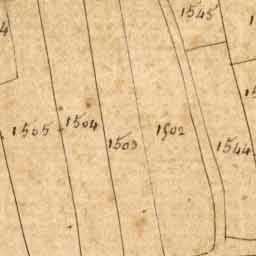 1545
1505
1504
1503
1502
1544